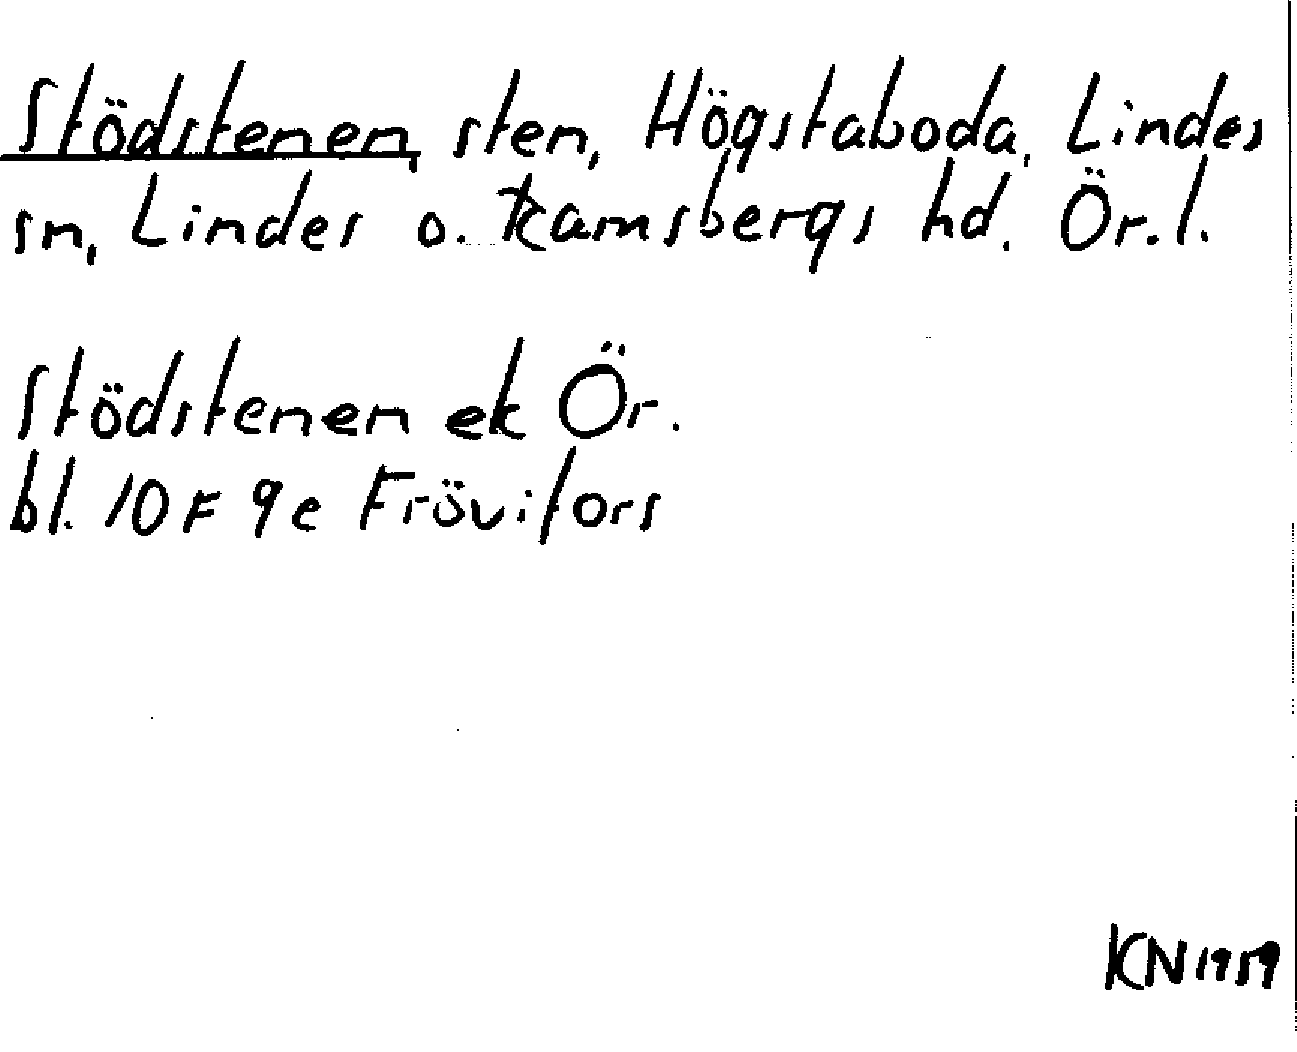 Stödstenen, sten, Högstaboda, Lindes
sn, Lindes o. Ramsbergs hd. Ör.l.
Stödstenen ek Ör.
bl. 10F 9e Frövifors
KN 1959